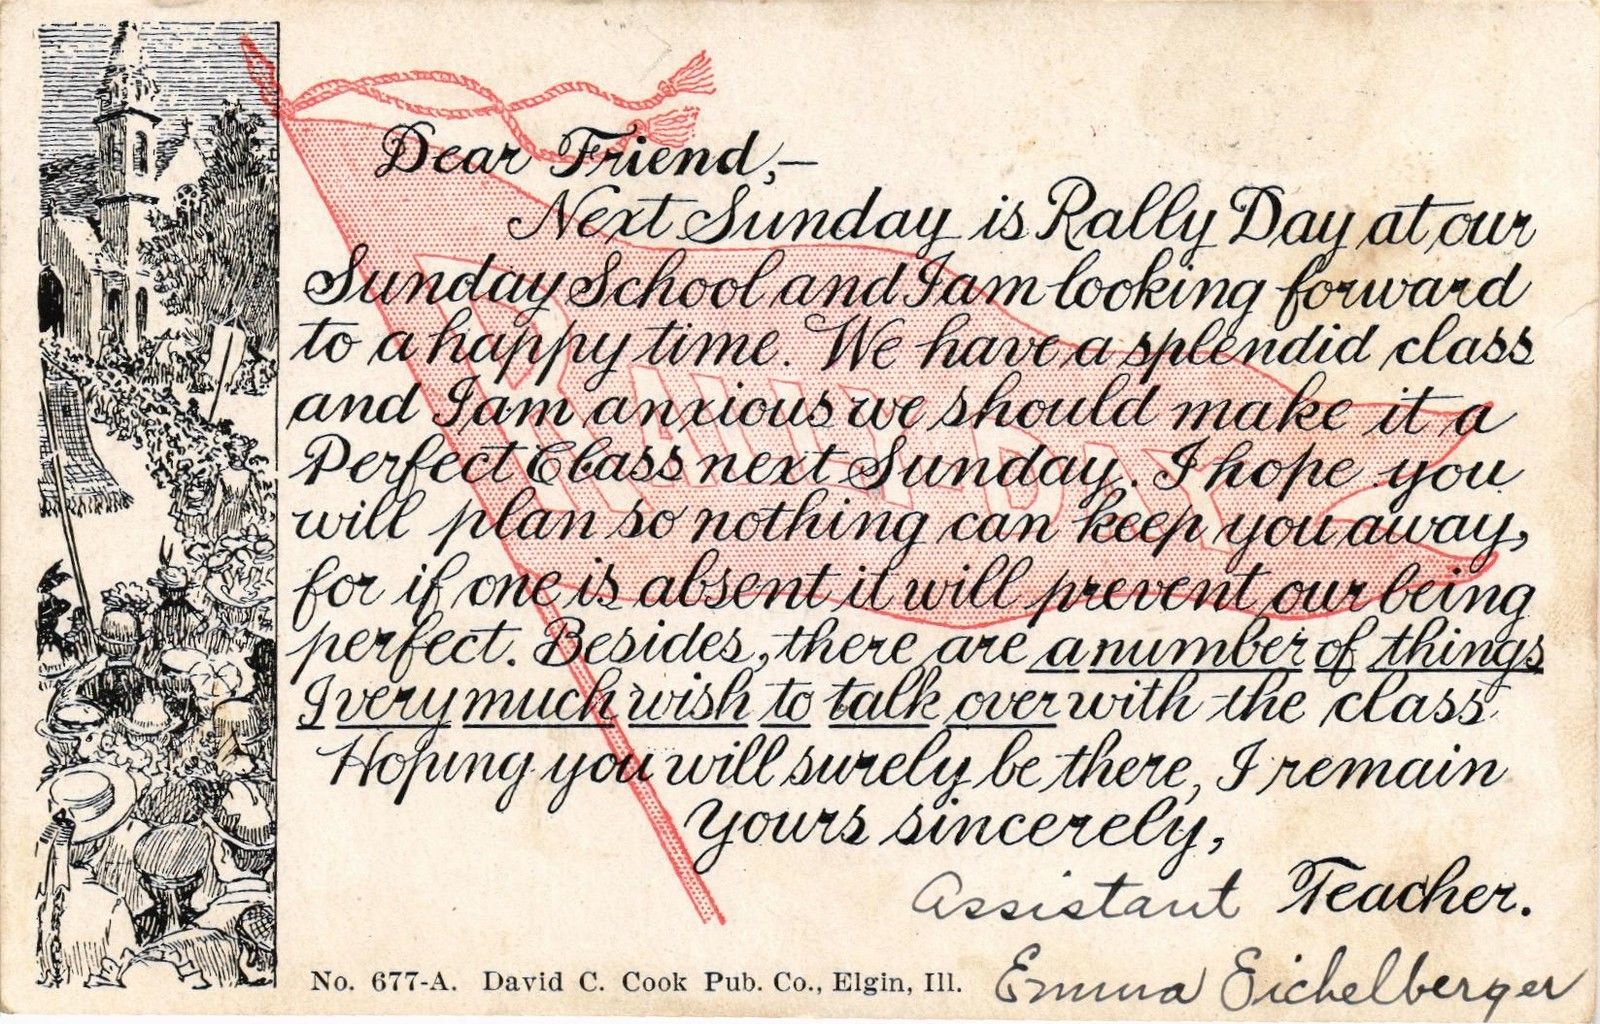 Dear Friend,—
Next Sunday is Rally Day at our
Sunday School and I am looking forward
to a happy time. We have a splendid class
and I am anxious we should make it a
Perfect Class next Sunday. I hope you
will plan so nothing can keep you away,
for if one is absent it will prevent our being
perfect. Besides, there are a number of things
I very much wish to talk over with the class
Hoping you will surely be there, I remain
Yours sincerely,
Assistant Teacher.
Emma Eichelberger
No. 677-A. David C. Cook Pub. Co., Elgin, Ill.
RALLY DAY